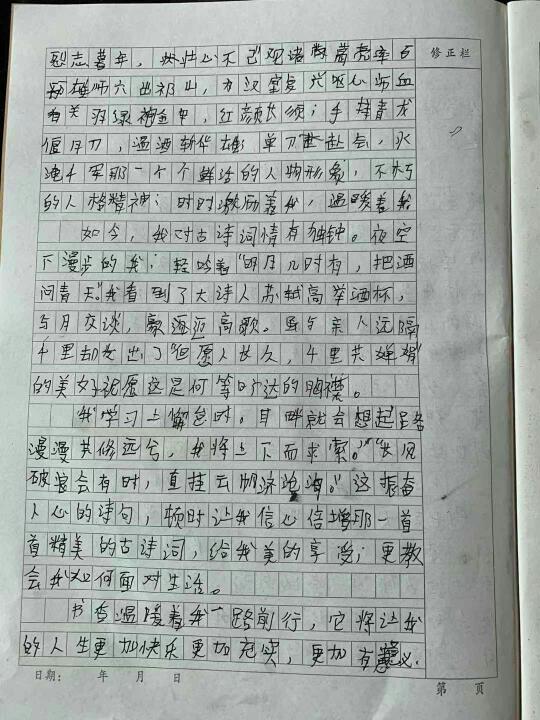 烈志暮年,壮心不已观诸葛亮率百
万雄师六出祁山,为汉室复兴呕心沥血
有关羽绿袍金甲,红颜长须;手持青龙
偃月刀,温酒斩华雄单刀赴会,水
淹七军那一个个鲜活的人物形象,不朽
的人格精神;时时激励着我,温暖着我
如今,我对古诗词情有独钟。夜空
下漫步的我;轻吟着"明月几时有,把酒
问青天"我看到了大诗人苏轼高举酒杯,
与月交谈,豪迈高歌。虽与亲人远隔
千里却发出了"但愿人长久,千里共婵娟"
的美好祝愿这是何等旷达的胸襟。
我学习上懈怠时。耳畔就会想起路
漫漫其修远兮,我将上下而求索。""长风
破浪会有时,直挂云帆济沧海。"这振奋
人心的诗句,顿时让我信心倍增那一首
首精美的古诗词,给我美的享受;更教
会我如何面对生活。
书香温暖着我一路前行,它将让我
的人生更加快乐更加充实,更加有意义.
修正栏
日期: 年 月 日
第 页